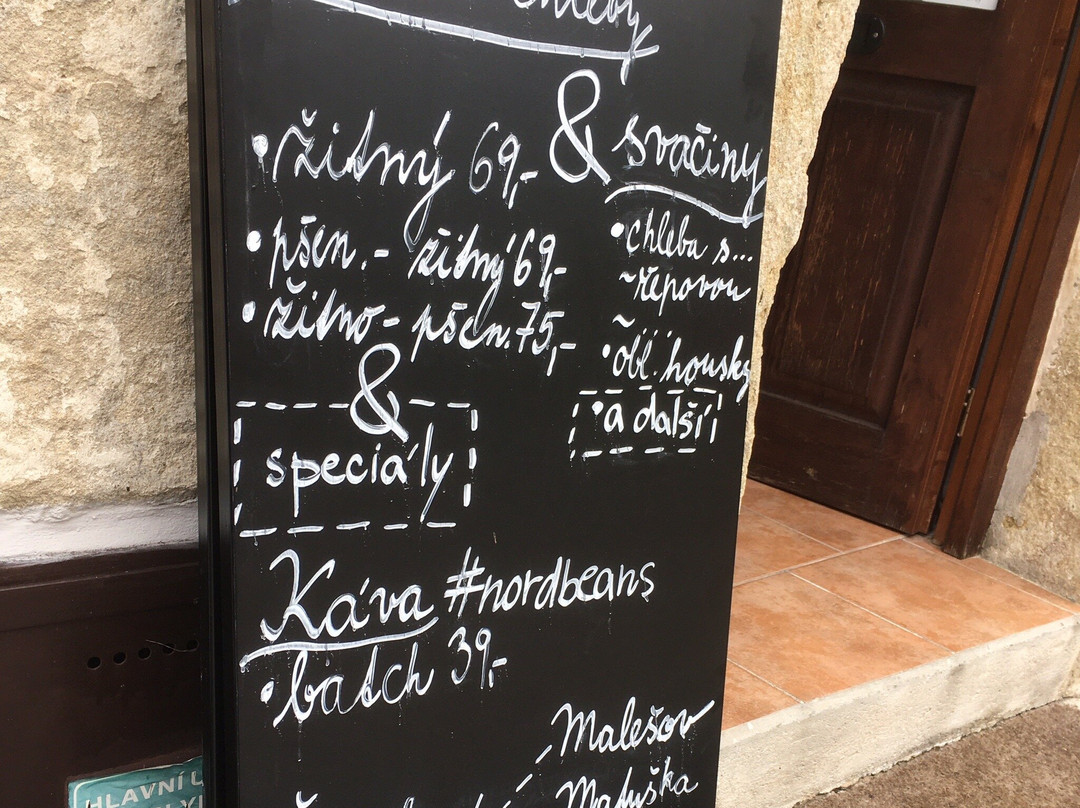 chleby
& svačiny
• žitný 69,-
• pšen.- žitný 69,-
• žitno - pšen. 75,-
• chleba s...
~ řepovou
~
• obl. housky
• a další
&
speciály
Káva #nordbeans
• batch 39,-
Malešov
Matuška
HLAVNÍ